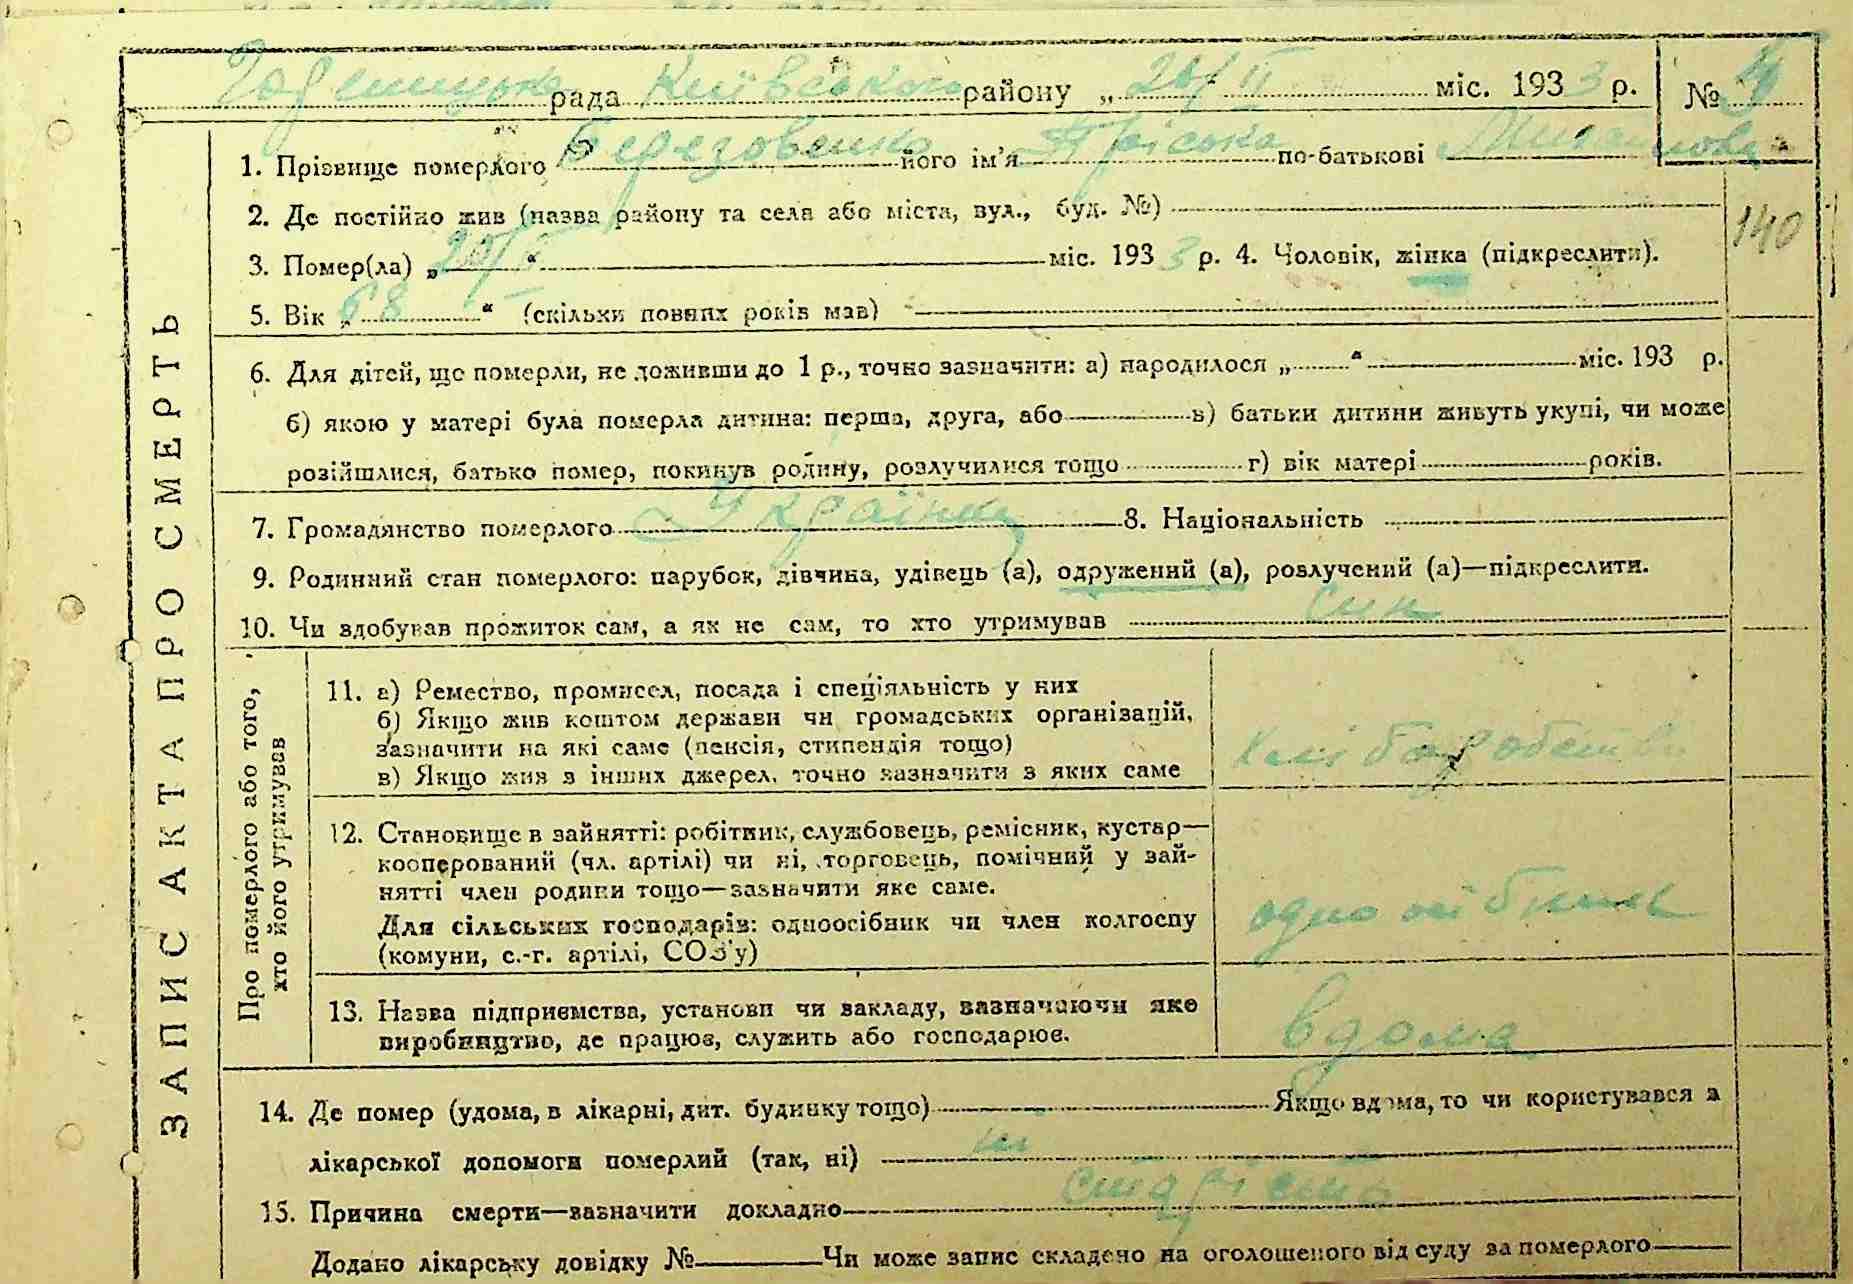 рада Київського району „ 20/II “ міс. 1933 р. №
1. Прізвище померлого Березовенко його ім’я Пріська по-батькові
2. Де постійно жив (назва району та села або міста, вул., буд. №)
140
3. Помер(ла) „ “ міс. 1933 р. 4. Чоловік, жінка (підкреслити).
5. Вік „ 68 “ (скільки повних років мав)
6. Для дітей, що померли, не доживши до 1 р., точно зазначити: а) народилося „ “ міс. 193 р.
б) якою у матері була померла дитина: перша, друга, або в) батьки дитини живуть укупі, чи може
розійшлися, батько помер, покинув родину, розлучилися тощо г) вік матері років.
7. Громадянство померлого Українка 8. Національність
9. Родинний стан померлого: парубок, дівчина, удівець (а), одружений (а), розлучений (а)—підкреслити.
10. Чи здобував прожиток сам, а як не сам, то хто утримував син
ЗАПИС АКТА ПРО СМЕРТЬ
Про померлого або того,
хто його утримував
11. а) Ремество, промисел, посада і спеціяльність у них
б) Якщо жив коштом держави чи громадських організацій,
зазначити на які саме (пенсія, стипендія тощо)
в) Якщо жив з інших джерел, точно зазначити з яких саме
12. Становище в зайнятті: робітник, службовець, ремісник, кустар—
кооперований (чл. артілі) чи ні, торговець, помічний у зай-
нятті член родини тощо—зазначити яке саме.
Для сільських господарів: одноосібник чи член колгоспу
(комуни, с.-г. артілі, СОЗ’у)
одноосібник
13. Назва підприємства, установи чи закладу, зазначаючи яке
виробництво, де працює, служить або господарює.
вдома
14. Де помер (удома, в лікарні, дит. будинку тощо) Якщо вдома, то чи користувався з
лікарської допомоги померлий (так, ні) ні
15. Причина смерти—зазначити докладно старість
Додано лікарську довідку № Чи може запис складено на оголошеного від суду за померлого